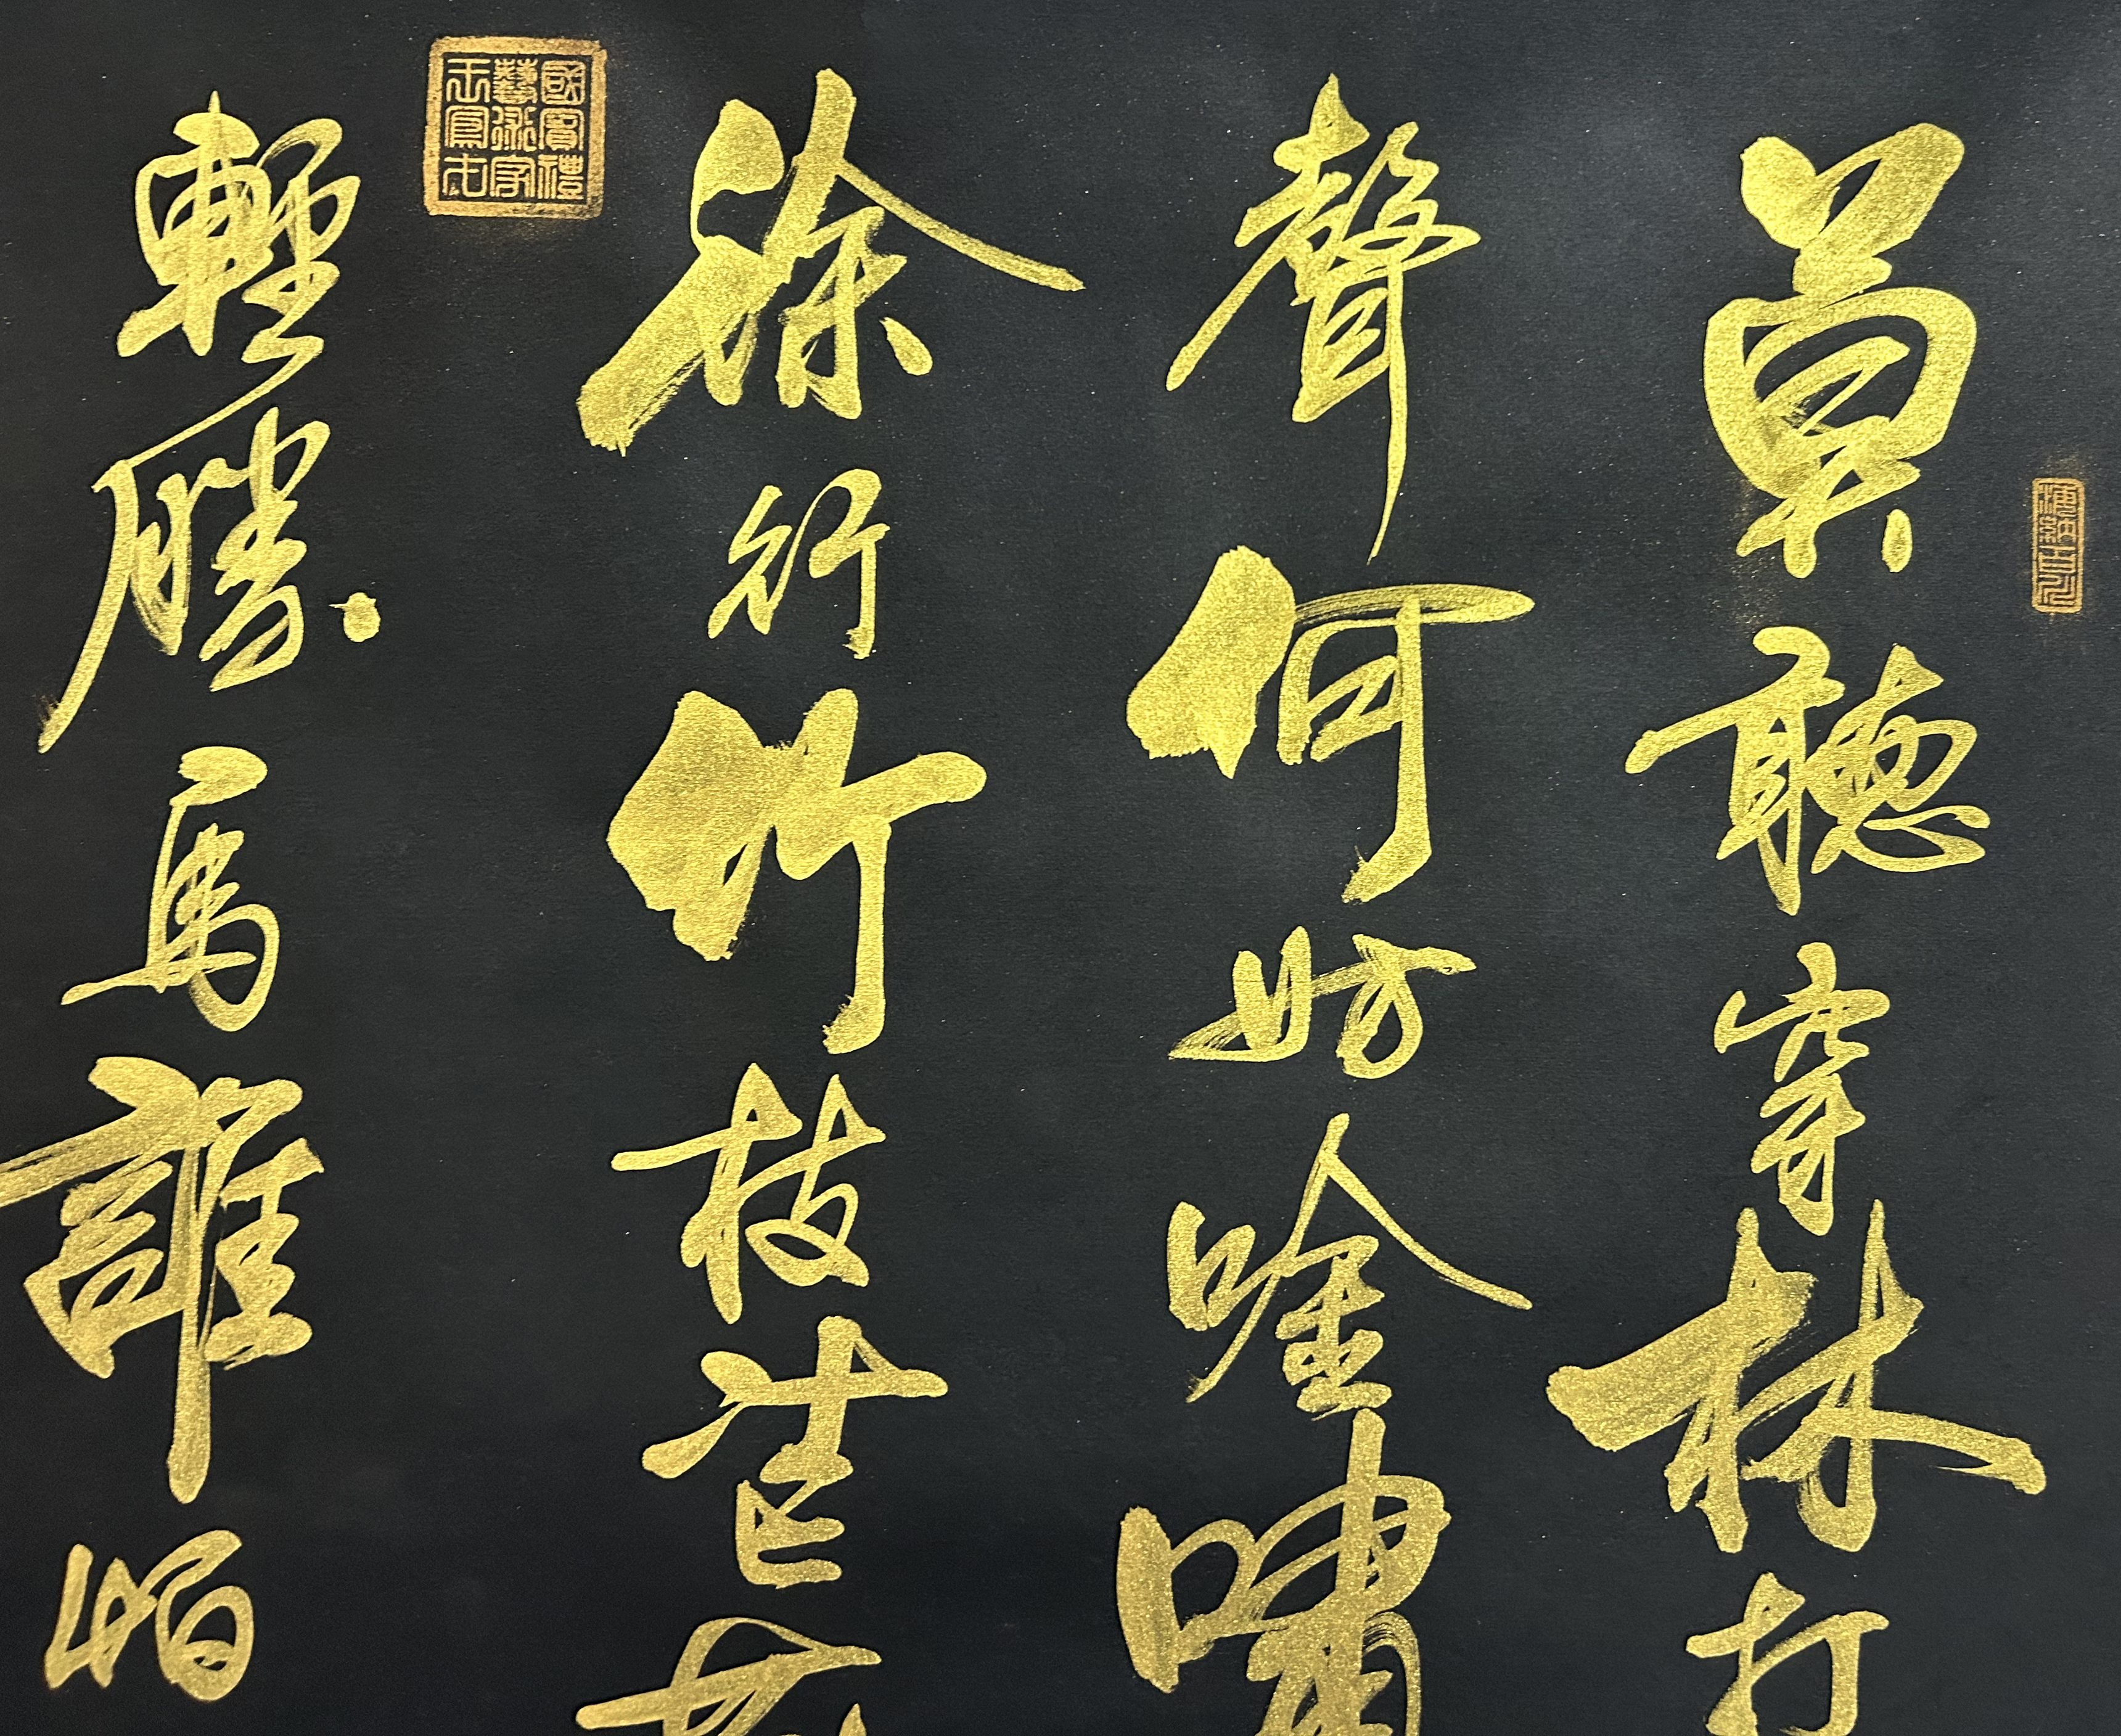 莫聽穿林打
聲何妨唫嘯
徐行竹枝芒
輕勝馬誰怕